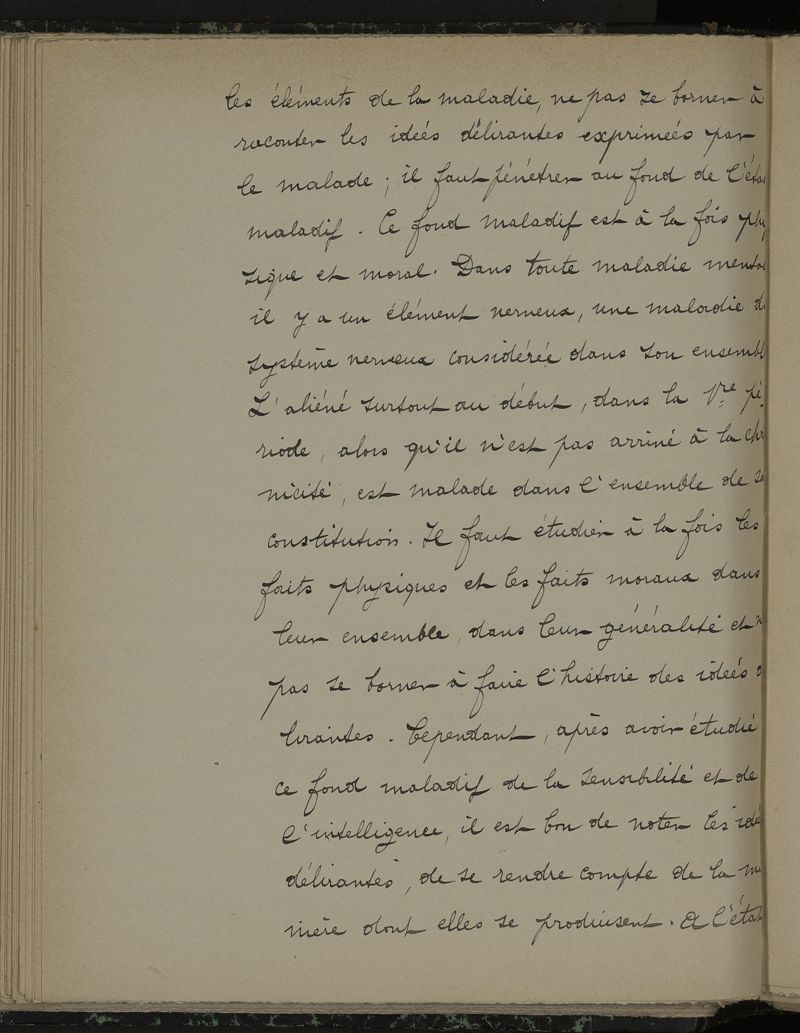 les éléments de la maladie, ne pas se borner à
raconter les idées délirantes exprimées par
le malade ; il faut pénétrer au fond de l'éta
maladif. Ce fond maladif est à la fois phy
sique et moral. Dans toute maladie menta
il y a un élément nerveux, une maladie d
système nerveux considérée dans son ensembl
L'aliéné surtout au début, dans la 1re pé
riode, alors qu'il n'est pas arrivé à la chr
nicité, est malade dans l'ensemble de sa
constitution. Il faut étudier à la fois les
faits physiques et les faits moraux dans
leur ensemble, dans leur généralité et n
pas se borner à faire l'histoire des idées d
lirantes. Cependant, après avoir étudié
ce fond maladif de la sensibilité et de
l'intelligence, il est bon de noter les idé
délirantes, de se rendre compte de la ma
nière dont elles se produisent. A l'état